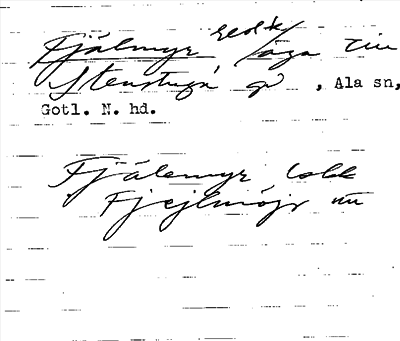 Fjälmyr redk äga till
Stenstuga gd , Ala sn,
Gotl. N. hd.
Fjälemyr lokk
Fjejlmöjr